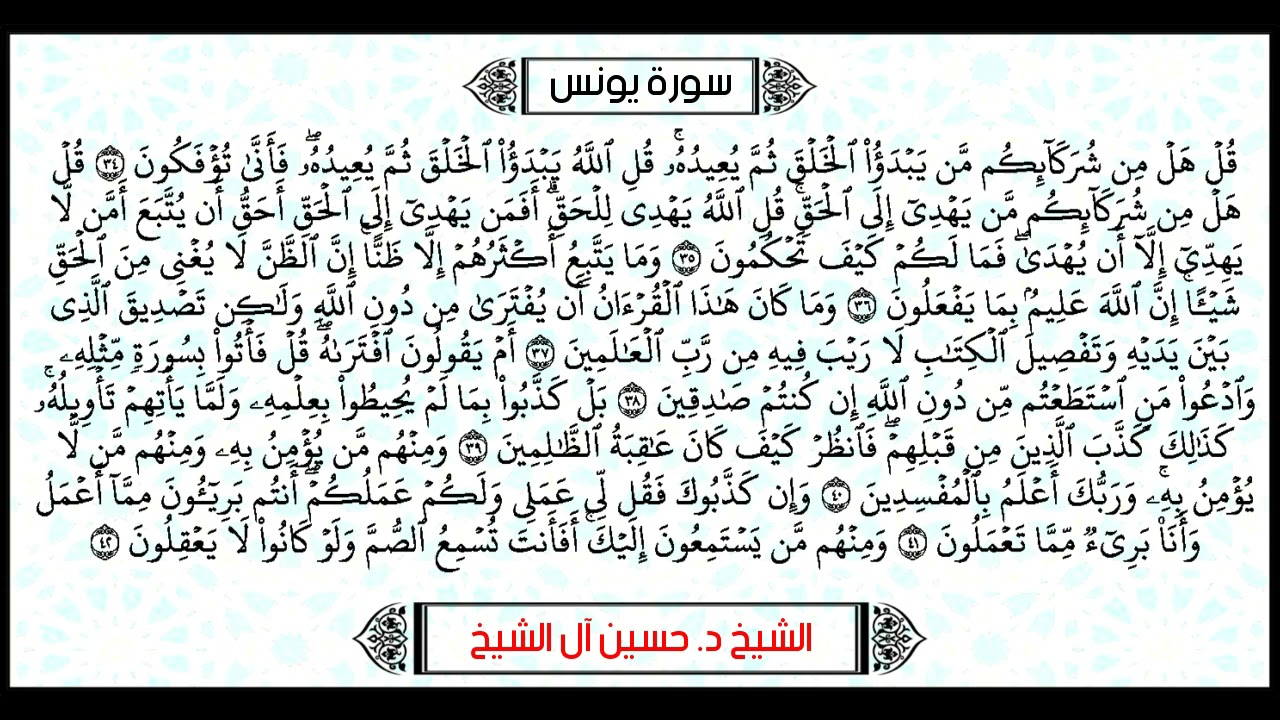 سورة يونس
قُلۡ هَلۡ مِن شُرَكَآئِكُم مَّن يَبۡدَؤُاْ ٱلۡخَلۡقَ ثُمَّ يُعِيدُهُۥۚ قُلِ ٱللَّهُ يَبۡدَؤُاْ ٱلۡخَلۡقَ ثُمَّ يُعِيدُهُۥۖ فَأَنَّىٰ تُؤۡفَكُونَ ٣٤ قُلۡ
هَلۡ مِن شُرَكَآئِكُم مَّن يَهۡدِيٓ إِلَى ٱلۡحَقِّۚ قُلِ ٱللَّهُ يَهۡدِي لِلۡحَقِّۗ أَفَمَن يَهۡدِيٓ إِلَى ٱلۡحَقِّ أَحَقُّ أَن يُتَّبَعَ أَمَّن لَّا
يَهِدِّيٓ إِلَّآ أَن يُهۡدَىٰۖ فَمَا لَكُمۡ كَيۡفَ تَحۡكُمُونَ ٣٥ وَمَا يَتَّبِعُ أَكۡثَرُهُمۡ إِلَّا ظَنًّاۚ إِنَّ ٱلظَّنَّ لَا يُغۡنِي مِنَ ٱلۡحَقِّ
شَيۡـًٔاۚ إِنَّ ٱللَّهَ عَلِيمُۢ بِمَا يَفۡعَلُونَ ٣٦ وَمَا كَانَ هَٰذَا ٱلۡقُرۡءَانُ أَن يُفۡتَرَىٰ مِن دُونِ ٱللَّهِ وَلَٰكِن تَصۡدِيقَ ٱلَّذِي
بَيۡنَ يَدَيۡهِ وَتَفۡصِيلَ ٱلۡكِتَٰبِ لَا رَيۡبَ فِيهِ مِن رَّبِّ ٱلۡعَٰلَمِينَ ٣٧ أَمۡ يَقُولُونَ ٱفۡتَرَىٰهُۖ قُلۡ فَأۡتُواْ بِسُورَةٖ مِّثۡلِهِۦ
وَٱدۡعُواْ مَنِ ٱسۡتَطَعۡتُم مِّن دُونِ ٱللَّهِ إِن كُنتُمۡ صَٰدِقِينَ ٣٨ بَلۡ كَذَّبُواْ بِمَا لَمۡ يُحِيطُواْ بِعِلۡمِهِۦ وَلَمَّا يَأۡتِهِمۡ تَأۡوِيلُهُۥۚ
كَذَٰلِكَ كَذَّبَ ٱلَّذِينَ مِن قَبۡلِهِمۡۖ فَٱنظُرۡ كَيۡفَ كَانَ عَٰقِبَةُ ٱلظَّٰلِمِينَ ٣٩ وَمِنۡهُم مَّن يُؤۡمِنُ بِهِۦ وَمِنۡهُم مَّن لَّا
يُؤۡمِنُ بِهِۦۚ وَرَبُّكَ أَعۡلَمُ بِٱلۡمُفۡسِدِينَ ٤٠ وَإِن كَذَّبُوكَ فَقُل لِّي عَمَلِي وَلَكُمۡ عَمَلُكُمۡۖ أَنتُم بَرِيٓـُٔونَ مِمَّآ أَعۡمَلُ
وَأَنَا۠ بَرِيٓءٞ مِّمَّا تَعۡمَلُونَ ٤١ وَمِنۡهُم مَّن يَسۡتَمِعُونَ إِلَيۡكَۚ أَفَأَنتَ تُسۡمِعُ ٱلصُّمَّ وَلَوۡ كَانُواْ لَا يَعۡقِلُونَ ٤٢
الشيخ د. حسين آل الشيخ